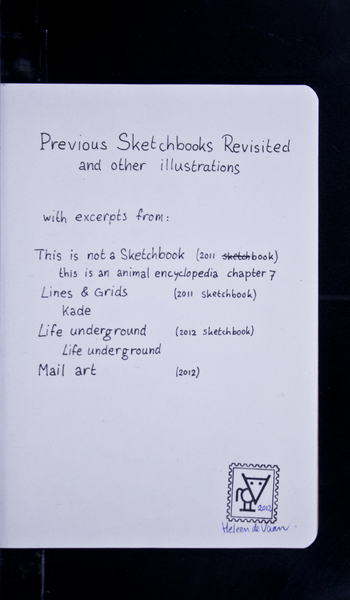 Previous Sketchbooks Revisited
and other illustrations
with excerpts from:
This is not a Sketchbook (2011 sketchbook)
this is an animal encyclopedia chapter 7
Lines & Grids (2011 sketchbook)
Kade
Life underground (2012 sketchbook)
Life underground
Mail art (2012)
2012
Heleen de Vaan